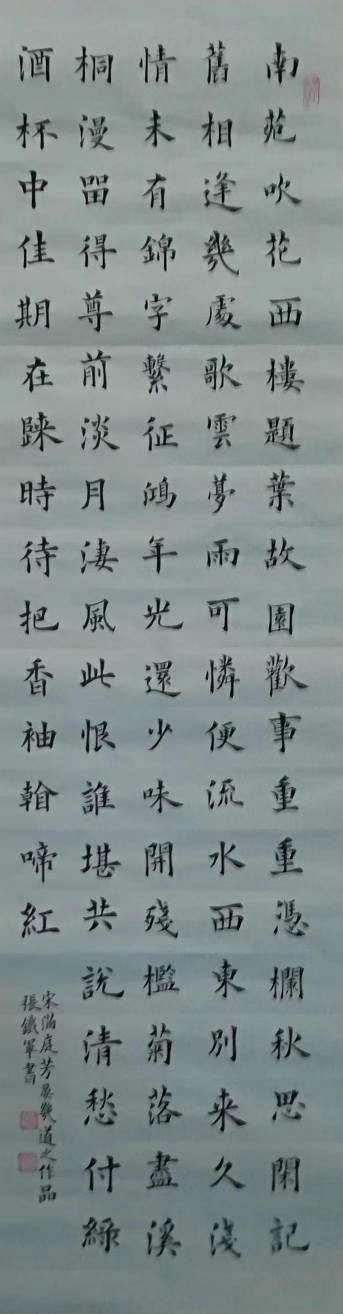 南苑吹花西樓題葉故園歡事重重憑欄秋思閑記
舊相逢幾處歌雲夢雨可憐便流水西東別來久淺
情未有錦字繫征鴻年光還少味開殘檻菊落盡溪
桐漫留得尊前淡月淒風此恨誰堪共說清愁付綠
酒杯中佳期在歸時待把香袖看啼紅
宋滿庭芳晏幾道之作品
張鐵軍書